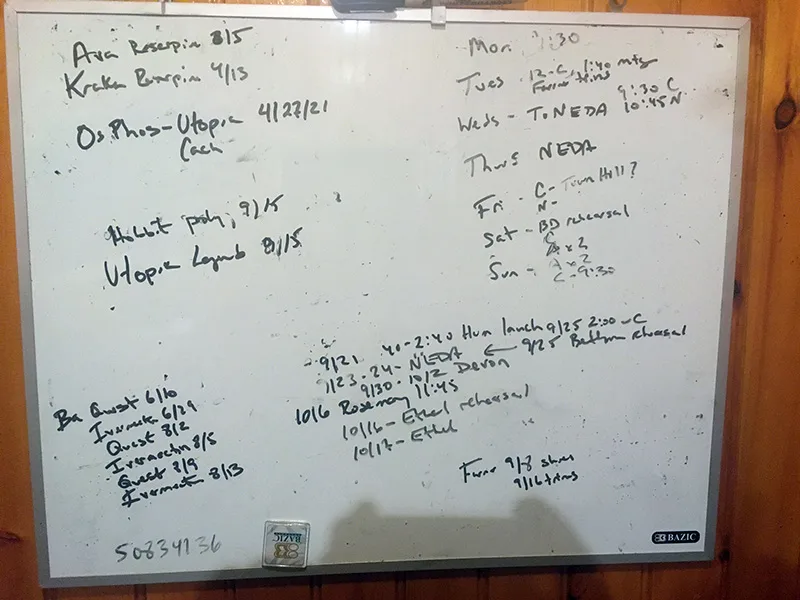 Ava Reserpin 8/5
Kraken Reserpin 4/13
Os Phos-Utopia 4/27/21
Cach
Hobbit poly, 9/15
Utopia Legend 8/15
Ba Quest 6/10
Ivermectin 6/29
Quest 8/2
Ivermectin 8/5
Quest 8/9
Ivermectin 8/13
50834136
Mon 1:30
Tues 12-C, 1:40 mtg
Farrier trims
Weds - To NEDA 9:30 C
10:45 N
Thurs NEDA
Fri - C- Town Hill?
N-
Sat - BD rehearsal
C
A x 2
Sun - A x 2
C - 9:30
9/21 40-2:40 Hum lunch 9/25 2:00 - C
1/23-24 - NEDA ← 9/25 Betham rehearsal
9/30 - 10/2 Devon
10/6 Rosemary 11:45
10/16 - Ethel rehearsal
10/17 - Ethel
Farrier 9/8 shoes
9/16 trims
BAZIC
BAZIC